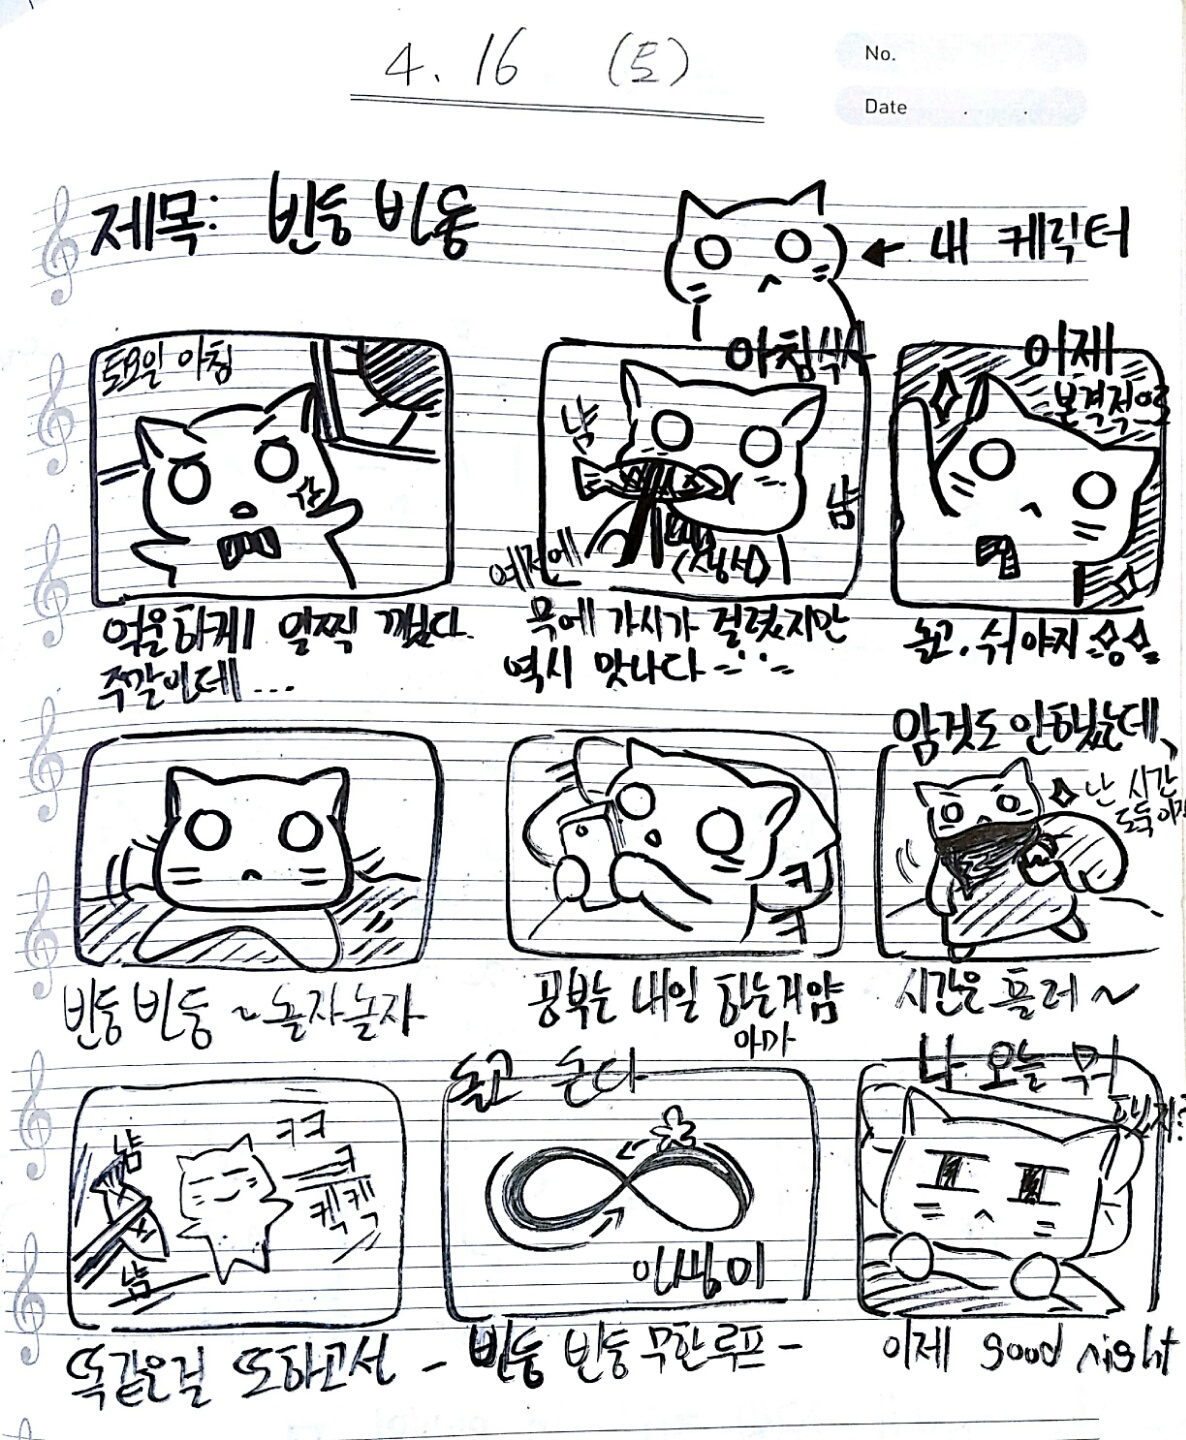 4. 16 (토)
No.
Date . .
제목: 빈둥 빈둥
← 내 케릭터
토요일 아침
억울하게 일찍 깨났다.
주말인데 ...
아침식사
냠
냠
<생선>
예전에
목에 가시가 걸렸지만
역시 맛나다
이제
본격적으로
놀고.쉬야지
빈둥빈둥 ~놀자놀자
ㅋ
ㅋ
공부는 내일 하는거얌
아마
암것도 안했는데,
난 시간
도둑이다
시간은 흘러~
냠
냠
ㅋㅋ
ㅋ
켁켁
똑같은걸 또하고선
놀고 논다
인생미
- 빈둥 빈둥 무한루프 -
나 오늘 뭐
했지?
이제 good night